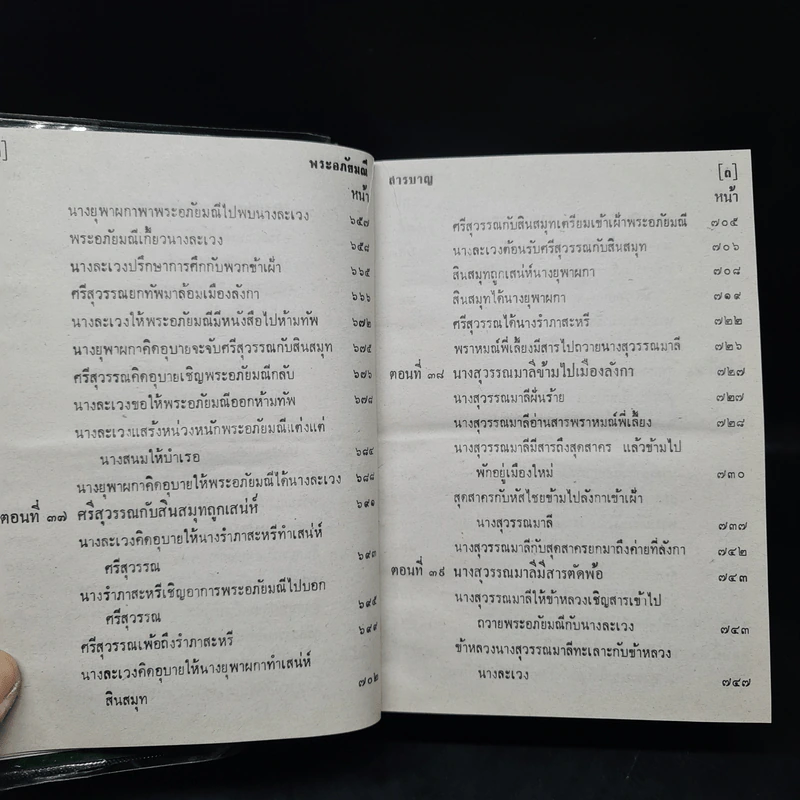 ]
พระอภัยมณี
หน้า
นางยุพาผกาพาพระอภัยมณีไปพบนางละเวง ๖๕๗
พระอภัยมณีเกี้ยวนางละเวง ๖๕๘
นางละเวงปรึกษาการศึกกับพวกข้าเฝ้า ๖๖๕
ศรีสุวรรณยกทัพมาล้อมเมืองลังกา ๖๖๖
นางละเวงให้พระอภัยมณีมีหนังสือไปห้ามทัพ ๖๗๒
นางยุพาผกาคิดอุบายจะจับศรีสุวรรณกับสินสมุท ๖๗๕
ศรีสุวรรณคิดอุบายเชิญพระอภัยมณีกลับ ๖๗๖
นางละเวงขอให้พระอภัยมณีออกห้ามทัพ ๖๗๘
นางละเวงแสร้งหน่วงหนักพระอภัยมณีแต่งแต่
นางสนมให้บำเรอ ๖๘๔
นางยุพาผกาคิดอุบายให้พระอภัยมณีได้นางละเวง ๖๘๘
ตอนที่ ๓๗ ศรีสุวรรณกับสินสมุทถูกเสน่ห์ ๖๙๑
นางละเวงคิดอุบายให้นางรำภาสะหรีทำเสน่ห์
ศรีสุวรรณ ๖๙๓
นางรำภาสะหรีเชิญอาการพระอภัยมณีไปบอก
ศรีสุวรรณ ๖๙๕
ศรีสุวรรณเพ้อถึงรำภาสะหรี ๖๙๙
นางละเวงคิดอุบายให้นางยุพาผกาทำเสน่ห์
สินสมุท ๗๐๒
สารบาญ [ถ]
หน้า
ศรีสุวรรณกับสินสมุทเตรียมเข้าเฝ้าพระอภัยมณี ๗๐๕
นางละเวงต้อนรับศรีสุวรรณกับสินสมุท ๗๐๖
สินสมุทถูกเสน่ห์นางยุพาผกา ๗๐๘
สินสมุทได้นางยุพาผกา ๗๑๙
ศรีสุวรรณได้นางรำภาสะหรี ๗๒๒
พราหมณ์พี่เลี้ยงมีสารไปถวายนางสุวรรณมาลี ๗๒๖
ตอนที่ ๓๘ นางสุวรรณมาลีข้ามไปเมืองลังกา ๗๒๗
นางสุวรรณมาลีฝันร้าย ๗๒๗
นางสุวรรณมาลีอ่านสารพราหมณ์พี่เลี้ยง ๗๒๘
นางสุวรรณมาลีมีสารถึงสุดสาคร แล้วข้ามไป
พักอยู่เมืองใหม่ ๗๓๐
สุดสาครกับหัสไชยข้ามไปลังกาเข้าเฝ้า
นางสุวรรณมาลี ๗๓๗
นางสุวรรณมาลีกับสุดสาครยกมาถึงค่ายที่ลังกา ๗๔๒
ตอนที่ ๓๙ นางสุวรรณมาลีมีสารตัดพ้อ ๗๔๓
นางสุวรรณมาลีให้ข้าหลวงเชิญสารเข้าไป
ถวายพระอภัยมณีกับนางละเวง ๗๔๓
ข้าหลวงนางสุวรรณมาลีทะเลาะกับข้าหลวง
นางละเวง ๗๔๗